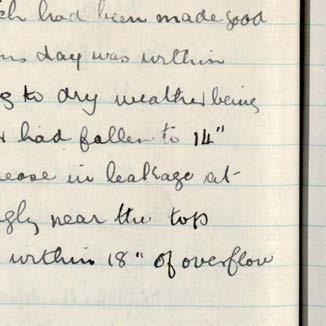 ch had been made good
ous day was within
g to dry weather being
r had fallen to 14"
rease in leakage at
gly near the top
within 18" of overflow